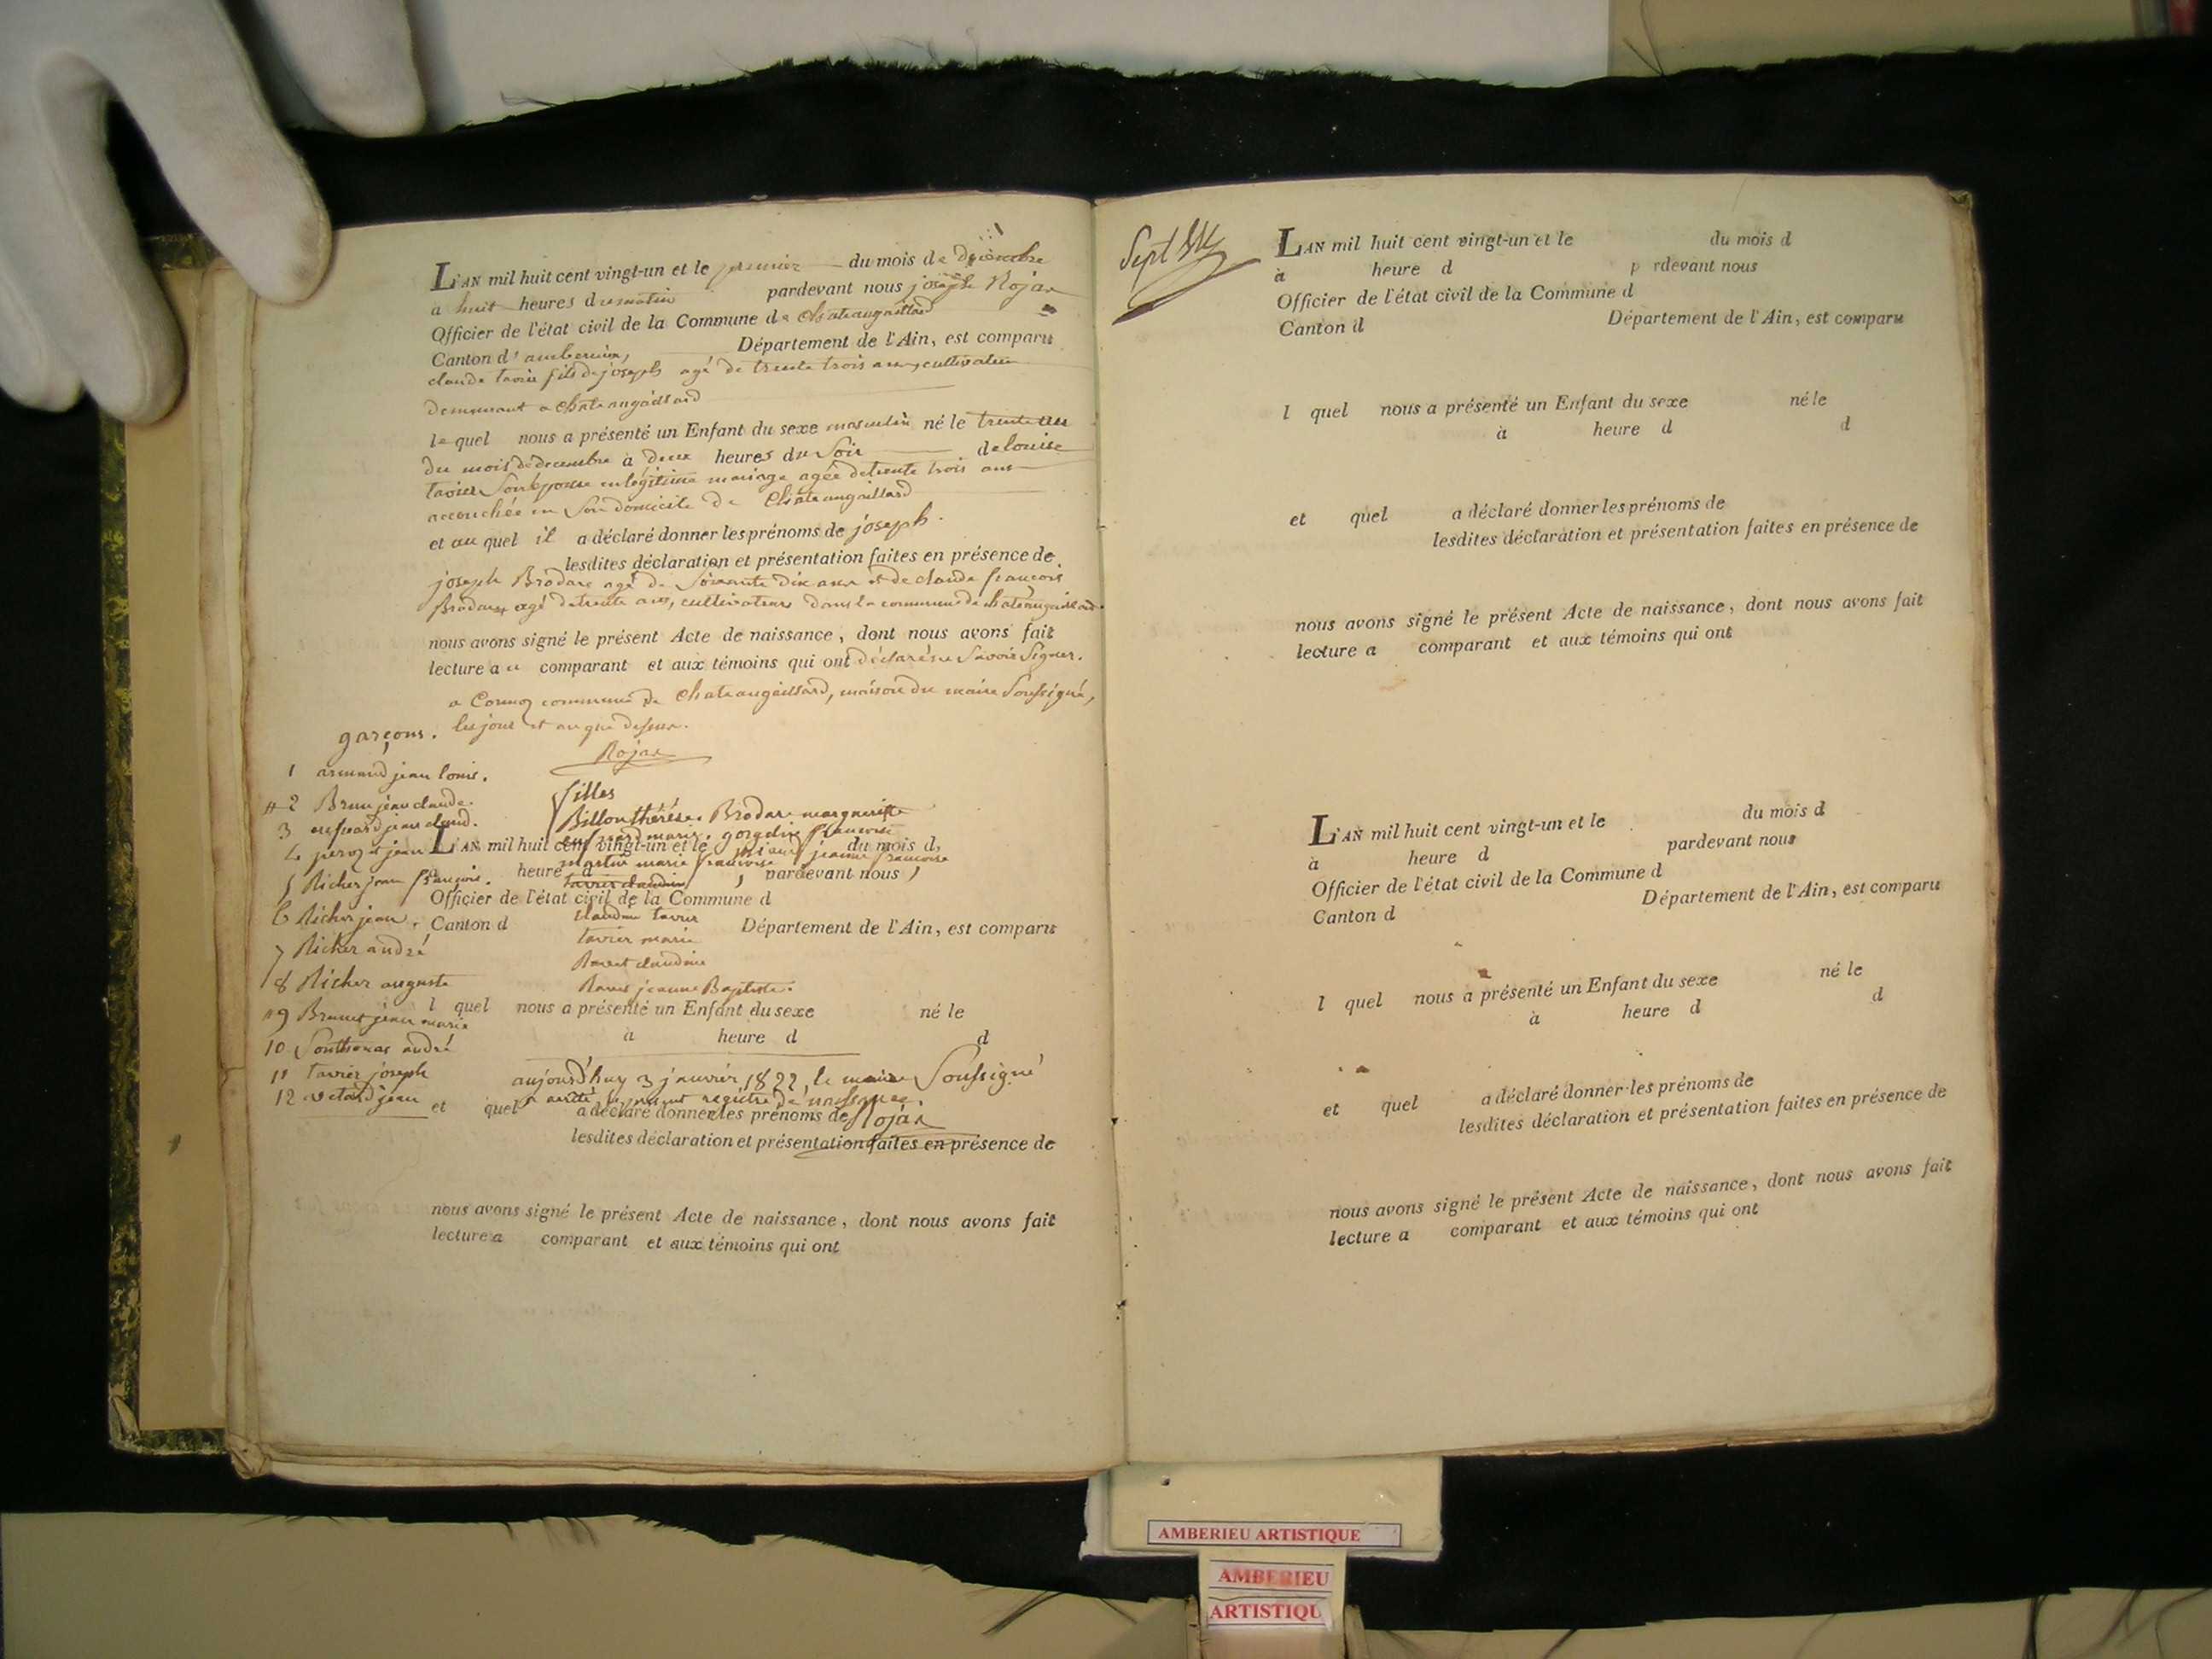 L'AN mil huit cent vingt-un et le premier du mois de décembre
a huit heures du matin pardevant nous joseph Rojax
Officier de l'état civil de la Commune de chateaugaillard
Canton d'amberieux, Département de l'Ain, est comparu
claude tavier fils de joseph agé de trente trois ans, cultivateur
demeurant a chateaugaillard
le quel nous a présenté un Enfant du sexe masculin né le trente un
du mois de decembre à deux heures du Soir de louise
tavier Son épouse en légitime mariage agée de trente trois ans
accouchée en Son domicile de Chateaugaillard
et au quel il a déclaré donner les prénoms de joseph.
lesdites déclaration et présentation faites en présence de
joseph Brodare agé de Soixante dix ans et de claude françois
Brodare agé de trente ans, cultivateurs dans la commune de chateaugaillard
nous avons signé le présent Acte de naissance, dont nous avons fait
lecture au comparant et aux témoins qui ont déclaré ne Savoir Signer.
a Cormoz commune de chateaugaillard, maison du maire Soussigné,
les jour et an que dessus.
Rojax
garçons.
1 armand jean louis.
2 Brun jean claude.
3 jean claud.
4 perozet jean
5 Richer jean françois.
6 Richer jean.
7 Richer andré
8 Richer auguste
9 Brunet jean marie
10 Southonax andré
11 tavier joseph
12 jean
filles
Billon thérése. Brodare marguerite
marie. françoise
martin marie françoise, jeanne françoise,
tavier claudine
claudine tavier
tavier marie
Ravet claudine
Ravet jeanne Baptiste.
L'AN mil huit cent vingt-un et le du mois d
heure d pardevant nous
Officier de l'état civil de la Commune d
Canton d Département de l'Ain, est comparu
l quel nous a présenté un Enfant du sexe né le
à heure d d
aujourd'huy 3 janvier 1822, le maire Soussigné
a arrêté le présent registre de naissance.
Rojax
et quel a déclaré donner les prénoms de
lesdites déclaration et présentation faites en présence de
nous avons signé le présent Acte de naissance, dont nous avons fait
lecture a comparant et aux témoins qui ont
Sept
L'AN mil huit cent vingt-un et le du mois d
à heure d p rdevant nous
Officier de l'état civil de la Commune d
Canton d Département de l'Ain, est comparu
l quel nous a présenté un Enfant du sexe né le
à heure d d
et quel a déclaré donner les prénoms de
lesdites déclaration et présentation faites en présence de
nous avons signé le présent Acte de naissance, dont nous avons fait
lecture a comparant et aux témoins qui ont
L'AN mil huit cent vingt-un et le du mois d
à heure d pardevant nous
Officier de l'état civil de la Commune d
Canton d Département de l'Ain, est comparu
l quel nous a présenté un Enfant du sexe né le
à heure d d
et quel a déclaré donner les prénoms de
lesdites déclaration et présentation faites en présence de
nous avons signé le présent Acte de naissance, dont nous avons fait
lecture a comparant et aux témoins qui ont
AMBERIEU ARTISTIQUE
AMBERIEU
ARTISTIQU